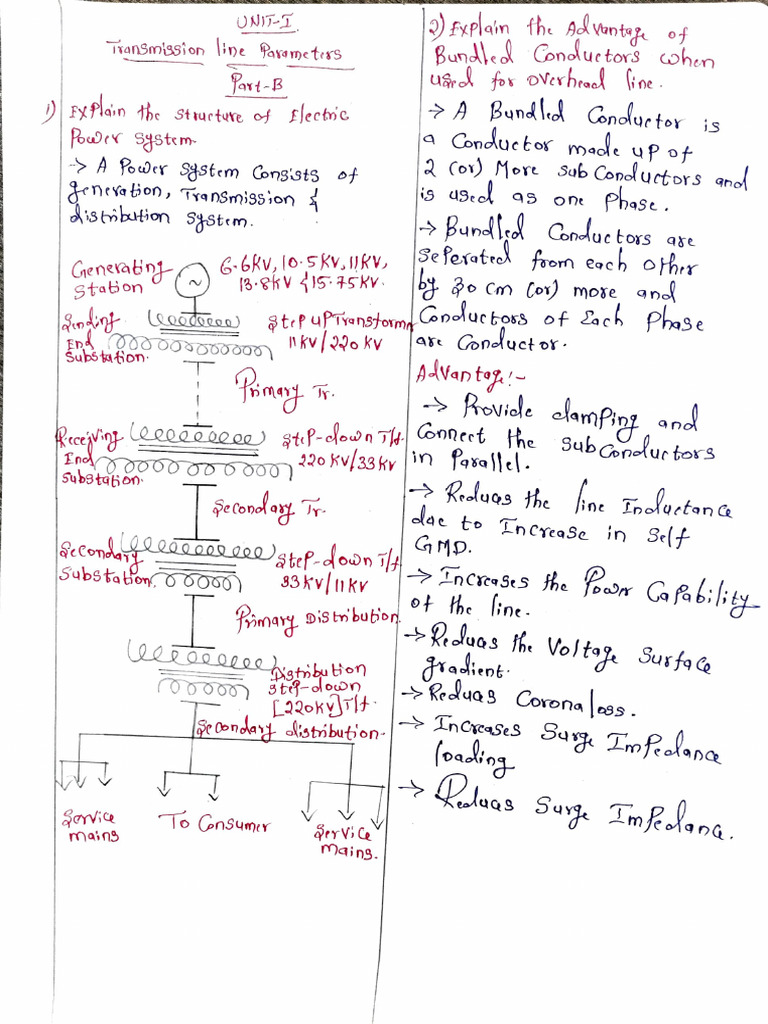 UNIT-I
Transmission line Parameters
Part-B
1) Explain the structure of Electric
Power system.
-> A Power system consists of
generation, Transmission &
distribution system.
Generating
Station
6.6KV, 10.5KV, 11KV,
13.8KV & 15.75KV.
Sending
End
Substation.
Step up Transformer
11KV/220KV
Primary Tr.
Receiving
End
Substation.
Step-down T/f.
220KV/33KV
Secondary Tr.
Secondary
Substation.
Step-down T/f.
33KV/11KV
Primary Distribution.
Distribution
Step-down
[220KV] T/f.
Secondary distribution.
Service
mains
To Consumer
Service
mains.
2) Explain the Advantage of
Bundled Conductors when
used for overhead line.
-> A Bundled Conductor is
a Conductor made up of
2 (or) More sub Conductors and
is used as one Phase.
-> Bundled Conductors are
Seperated from each other
by 30 cm (or) more and
Conductors of Each Phase
are Conductor.
Advantage:-
-> Provide clamping and
Connect the sub Conductors
in Parallel.
-> Reduces the line Inductance
due to Increase in Self
GMD.
-> Increases the Power Capability
of the line.
-> Reduces the Voltage Surface
gradient.
-> Reduces Corona loss.
-> Increases Surge Impedance
loading
-> Reduces Surge Impedance.